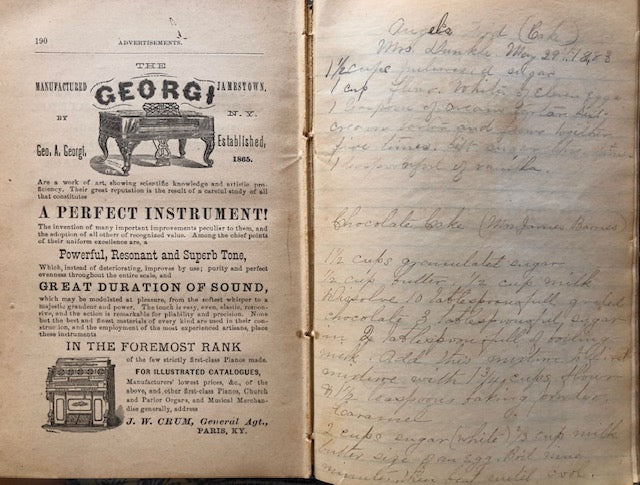 190
ADVERTISEMENTS.
THE
MANUFACTURED GEORGI JAMESTOWN,
BY N. Y.
Geo. A. Georgi. Established,
1865.
Are a work of art, showing scientific knowledge and artistic pro-
ficiency. Their great reputation is the result of a careful study of all
that constitutes
A PERFECT INSTRUMENT!
The invention of many important improvements peculiar to them, and
the adoption of all others of recognized value. Among the chief points
of their uniform excellence are, a
Powerful, Resonant and Superb Tone,
Which, instead of deteriorating, improves by use; purity and perfect
evenness throughout the entire scale, and
GREAT DURATION OF SOUND,
which may be modulated at pleasure, from the softest whisper to a
majestic grandeur and power. The touch is easy, even, elastic, respon-
sive, and the action is remarkable for pliability and precision. None
but the best and finest materials of every kind are used in their con-
struction, and the employment of the most experienced artisans, place
these instruments
IN THE FOREMOST RANK
of the few strictly first-class Pianos made.
FOR ILLUSTRATED CATALOGUES,
Manufacturers' lowest prices, &c., of the
above, and other first-class Pianos, Church
and Parlor Organs, and Musical Merchan-
dise generally, address
J. W. CRUM, General Agt.,
PARIS, KY.
Angel's Food (Cake)
Mrs. May 29
1½ cups pulverised sugar
1 cup flour. Whites of eleven eggs
1 teaspoon of cream tartar
cream tartar and flour together
five times. Sift sugar
1 teaspoonful of vanilla
Chocolate Cake (Mrs James Barnes)
1½ cups granulated sugar
½ cup butter ½ cup milk
Dissolve 10 tablespoonfulls
chocolate 3 tablespoonfuls sugar
in 2 tablespoonfull of boiling
milk. Add this mixture to first
mixture with 1¾ cups flour
1½ teaspoons baking powder
Caramel
2 cups sugar (white) ⅔ cup milk
butter size of an egg. Boil nine
minutes then beat until cool.